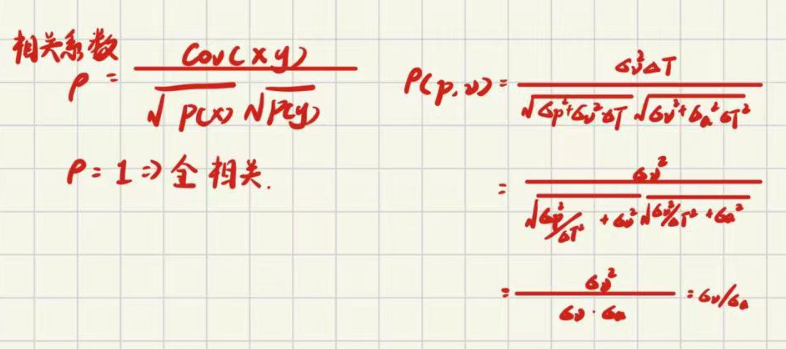 相关系数
ρ = Cov(x y) / √P(x) √P(y)
ρ = 1 => 全相关.
P(p,v) = σv²ΔT / √σp²+σv²·ΔT √σv²+σa²σT²
= σv² / √σp²/ΔT² + σv² √σv²/σT² + σa²
= σv² / σv · σa = σv/σa